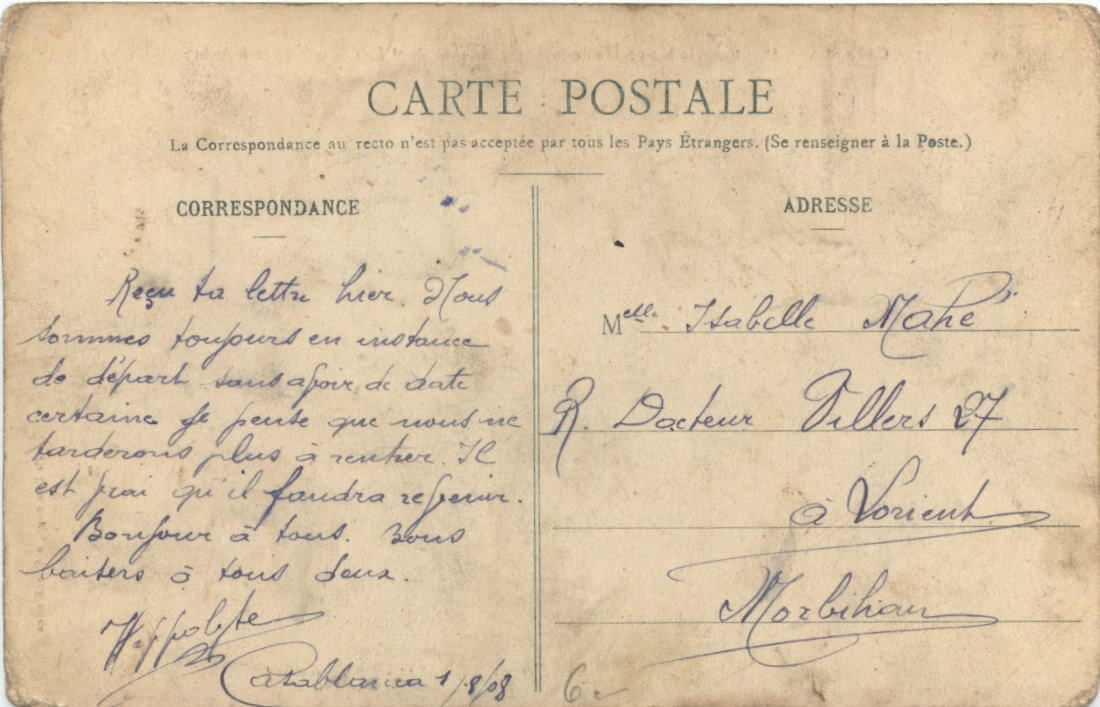 CARTE POSTALE
La Correspondance au recto n'est pas acceptée par tous les Pays Étrangers. (Se renseigner à la Poste.)
CORRESPONDANCE
Reçu ta lettre hier. Nous
sommes toujours en instance
de départ sans avoir de date
certaine je pense que nous ne
tarderons plus à rentrer. Il
est vrai qu'il faudra revenir.
Bonjour à tous. Bons
baisers à tous deux.
Hippolyte
Casablanca 1/8/08
ADRESSE
Melle Isabelle Mahé
R. Docteur Villers 27
à Lorient
Morbihan
6